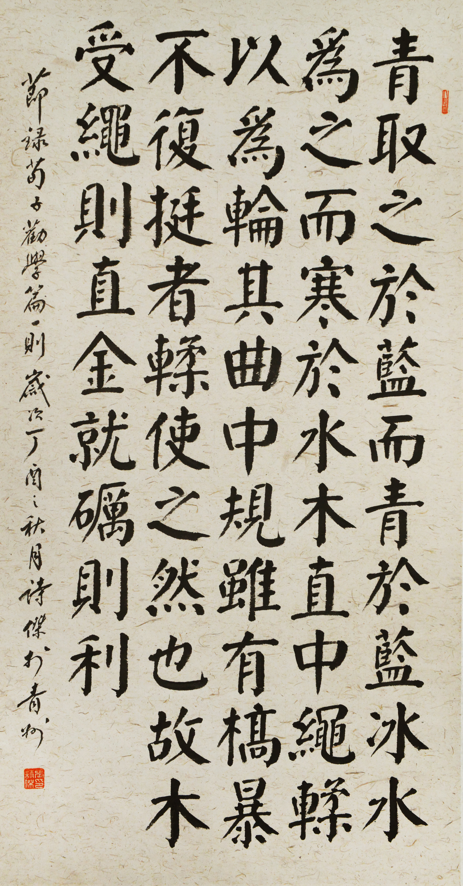 青取之於藍而青於藍冰水
爲之而寒於水木直中繩輮
以爲輪其曲中規雖有槁暴
不復挺者輮使之然也故木
受繩則直金就礪則利
節録荀子勸學篇一則 歲次丁酉之秋月詩傑於青州